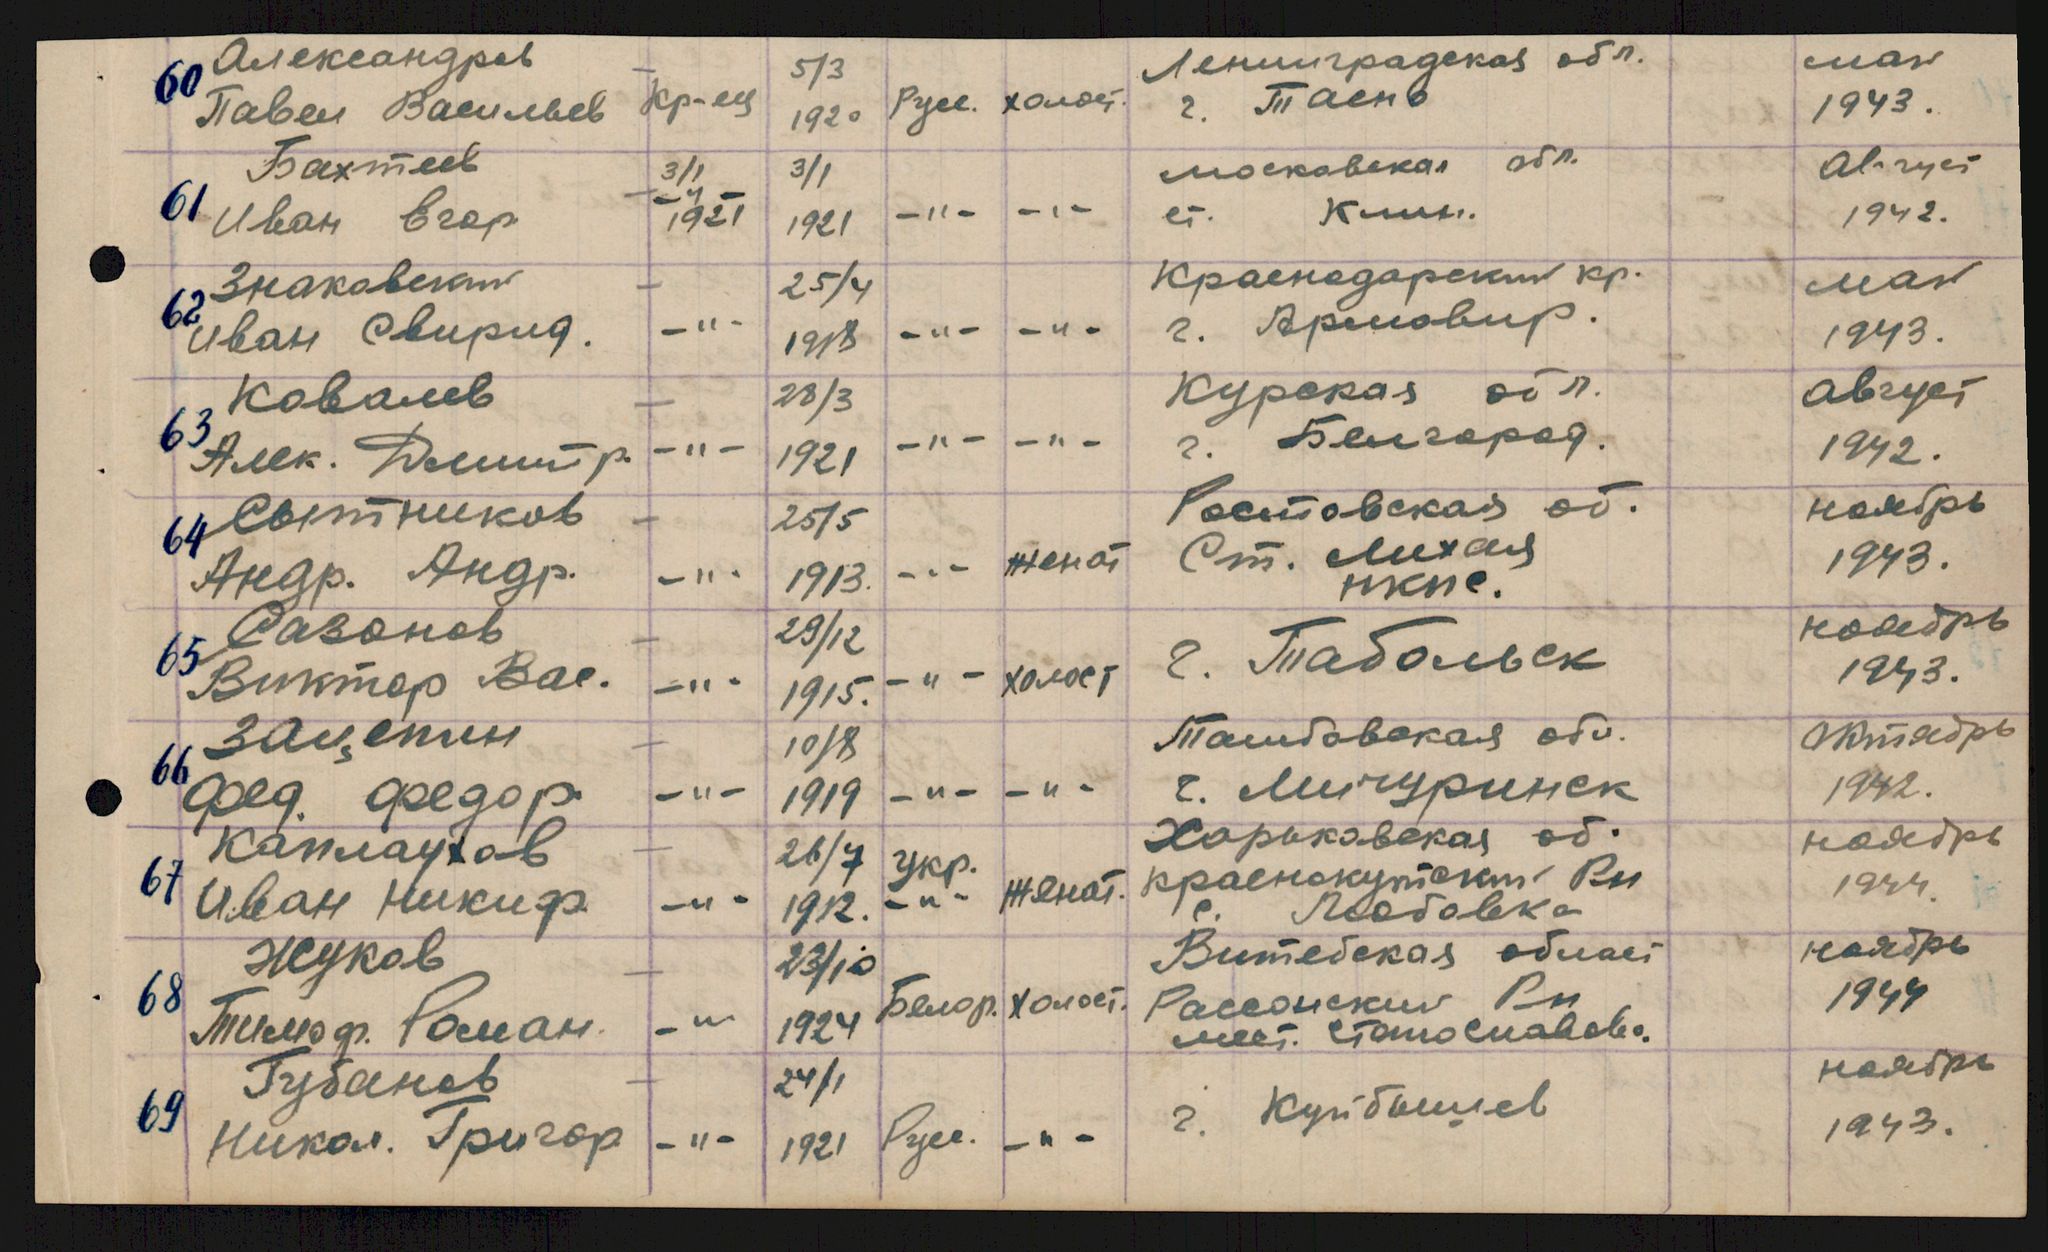 60 Александров — 5/3 Ленинградская обл. май
Павел Васильев Кр-ец 1920 Русс. холост. г. Тасно 1943.
61 Бахтеев 3/1 3/1 московская обл. Август
Иван Егор — -"- 1921 1921 -"- -"- ст. Клин. 1942.
62 Знаковский — 25/4 Краснодарский кр. май
Иван Свирид. -"- 1918 -"- -"- г. Армовир. 1943.
63 Ковалев — 28/3 Курская обл. Август
Алек. Дмитр. -"- 1921 -"- -"- г. Белгород. 1942.
64 Сытников — 25/5 Ростовская об. ноябрь
Андр. Андр. -"- 1913. -"- женат Ст. Лихая 1943.
нкпс.
65 Сазонов — 29/12 ноябрь
Виктор Вас. -"- 1915. -"- холост г. Табольск 1943.
66 Зацепин — 10/8 Тамбовская обл. октябрь
Фед. Федор. -"- 1919 -"- -"- г. Мичуринск 1942.
67 Каплаухов — 26/7 укр. Харьковская об. ноябрь
Иван Никиф. -"- 1912. -"- женат. Краснокутский Рн 1944.
с. Любовка
68 Жуков — 23/10 Витебская област ноябрь
Тимоф. Роман. -"- 1924 Белор. холост. Рассонский Рн 1944
мест.
69 Губанов — 24/1 ноябрь
Никол. Григор -"- 1921 Русс. -"- г. Куйбышев 1943.